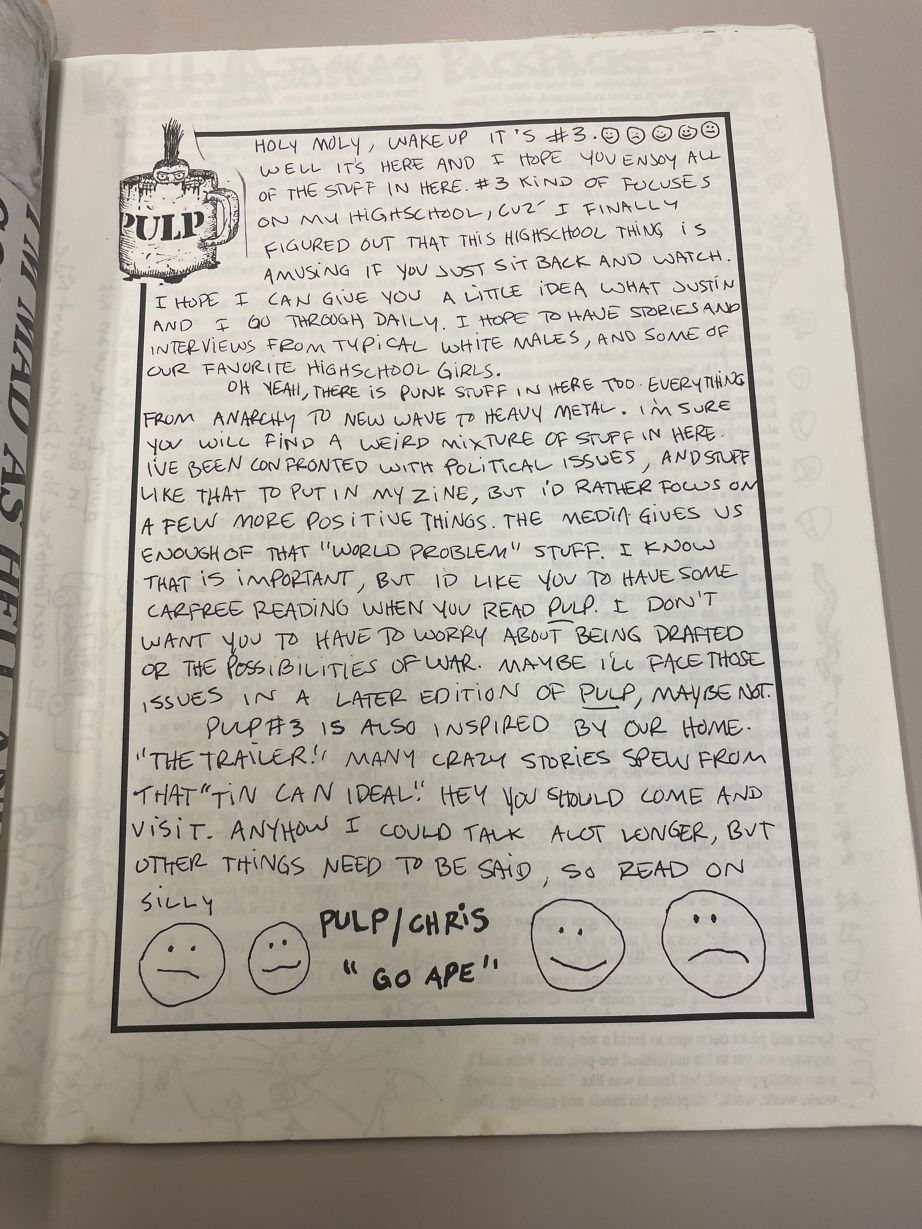 PULP
HOLY MOLY, WAKE UP IT'S #3.
WELL IT'S HERE AND I HOPE YOU ENJOY ALL
OF THE STUFF IN HERE. #3 KIND OF FOCUSES
ON MY HIGHSCHOOL, CUZ' I FINALLY
FIGURED OUT THAT THIS HIGHSCHOOL THING IS
AMUSING IF YOU JUST SIT BACK AND WATCH.
I HOPE I CAN GIVE YOU A LITTLE IDEA WHAT JUSTIN
AND I GO THROUGH DAILY. I HOPE TO HAVE STORIES AND
INTERVIEWS FROM TYPICAL WHITE MALES, AND SOME OF
OUR FAVORITE HIGHSCHOOL GIRLS.
OH YEAH, THERE IS PUNK STUFF IN HERE TOO. EVERYTHING
FROM ANARCHY TO NEW WAVE TO HEAVY METAL. I'M SURE
YOU WILL FIND A WEIRD MIXTURE OF STUFF IN HERE.
I'VE BEEN CONFRONTED WITH POLITICAL ISSUES, AND STUFF
LIKE THAT TO PUT IN MY ZINE, BUT I'D RATHER FOCUS ON
A FEW MORE POSITIVE THINGS. THE MEDIA GIVES US
ENOUGH OF THAT "WORLD PROBLEM" STUFF. I KNOW
THAT IS IMPORTANT, BUT I'D LIKE YOU TO HAVE SOME
CARFREE READING WHEN YOU READ PULP. I DON'T
WANT YOU TO HAVE TO WORRY ABOUT BEING DRAFTED
OR THE POSSIBILITIES OF WAR. MAYBE I'LL FACE THOSE
ISSUES IN A LATER EDITION OF PULP, MAYBE NOT.
PULP #3 IS ALSO INSPIRED BY OUR HOME.
"THE TRAILER!" MANY CRAZY STORIES SPEW FROM
THAT "TIN CAN IDEAL." HEY YOU SHOULD COME AND
VISIT. ANYHOW I COULD TALK ALOT LONGER, BUT
OTHER THINGS NEED TO BE SAID, SO READ ON
SILLY
PULP/CHRIS
"GO APE"
I'M MAD AS HELL AND